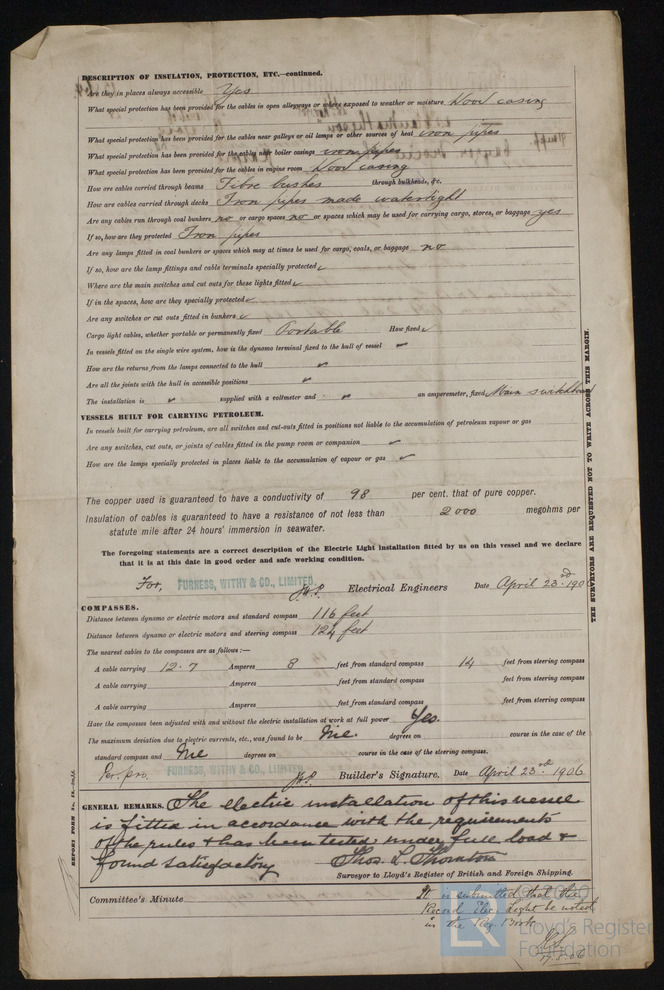 DESCRIPTION OF INSULATION, PROTECTION, ETC.—continued.
Are they in places always accessible Yes
What special protection has been provided for the cables in open alleyways or where exposed to weather or moisture Wood casing
What special protection has been provided for the cables near galleys or oil lamps or other sources of heat iron pipes
What special protection has been provided for the cables near boiler casings iron pipes
What special protection has been provided for the cables in engine room Wood casing
How are cables carried through beams Fibre bushes through bulkheads, &c.
How are cables carried through decks Iron pipes made watertight
Are any cables run through coal bunkers no or cargo spaces no or spaces which may be used for carrying cargo, stores, or baggage yes
If so, how are they protected Iron pipes
Are any lamps fitted in coal bunkers or spaces which may at times be used for cargo, coals, or baggage no
If so, how are the lamp fittings and cable terminals specially protected ✓
Where are the main switches and cut outs for these lights fitted ✓
If in the spaces, how are they specially protected ✓
Are any switches or cut outs fitted in bunkers ✓
Cargo light cables, whether portable or permanently fixed Portable How fixed ✓
In vessels fitted on the single wire system, how is the dynamo terminal fixed to the hull of vessel ✓
How are the returns from the lamps connected to the hull ✓
Are all the joints with the hull in accessible positions ✓
The installation is ✓ supplied with a voltmeter and ✓ an amperemeter, fixed Main switchboard
VESSELS BUILT FOR CARRYING PETROLEUM.
In vessels built for carrying petroleum, are all switches and cut-outs fitted in positions not liable to the accumulation of petroleum vapour or gas
Are any switches, cut outs, or joints of cables fitted in the pump room or companion ✓
How are the lamps specially protected in places liable to the accumulation of vapour or gas ✓
The copper used is guaranteed to have a conductivity of 98 per cent. that of pure copper.
Insulation of cables is guaranteed to have a resistance of not less than 2000 megohms per
statute mile after 24 hours' immersion in seawater.
The foregoing statements are a correct description of the Electric Light installation fitted by us on this vessel and we declare
that it is at this date in good order and safe working condition.
For, FURNESS, WITHY & CO., LIMITED, Electrical Engineers Date April 23rd 190
COMPASSES.
Distance between dynamo or electric motors and standard compass 116 feet
Distance between dynamo or electric motors and steering compass 124 feet
The nearest cables to the compasses are as follows :—
A cable carrying 12.7 Amperes 8 feet from standard compass 14 feet from steering compass
A cable carrying Amperes feet from standard compass feet from steering compass
A cable carrying Amperes feet from standard compass feet from steering compass
Have the compasses been adjusted with and without the electric installation at work at full power Yes.
The maximum deviation due to electric currents, etc., was found to be Nil. degrees on course in the case of the
standard compass and Nil degrees on course in the case of the steering compass.
Per pro. FURNESS, WITHY & CO., LIMITED Builder's Signature. Date April 23rd 1906
GENERAL REMARKS. The electric installation of this vessel
is fitted in accordance with the requirements
of the rules & has been tested under full load &
found satisfactory Thos. L. Thornton
Surveyor to Lloyd's Register of British and Foreign Shipping.
Committee's Minute
It is submitted that the
Record Elec. Light be noted
in the Reg. Book
17.5.06
THE SURVEYORS ARE REQUESTED NOT TO WRITE ACROSS THIS MARGIN.
LR
Lloyd's Register
Foundation